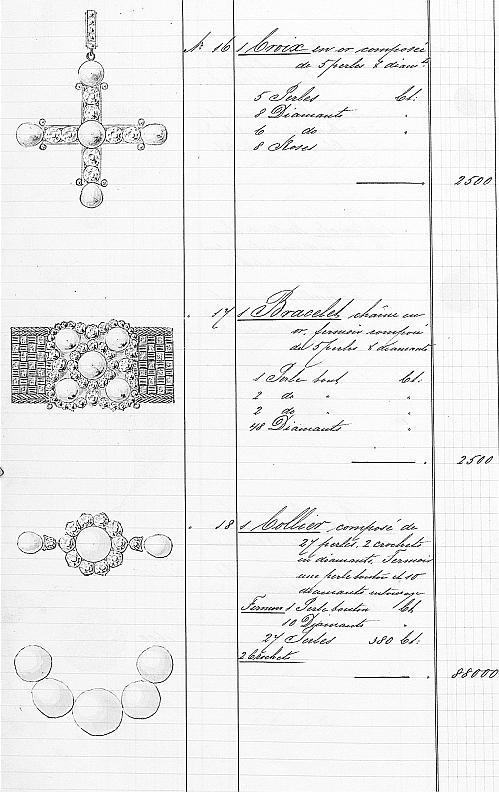 No 16 1 Croix en or composée
de 5 perles & diamts
5 Perles Ct:
8 Diamants "
6 do "
8 Roses
2500
17 1 Bracelet chaîne en
or, fermoir composé
de 5 perles & diamants
1 Perle bout Ct:
2 do " "
2 do " "
48 Diamants "
2500
18 1 Collier composé de
27 perles, 2 crochets
en diamants, Fermoir
une perle bouton et 10
diamants entourage
Fermoir 1 Perle bouton Ct
10 Diamants "
27 Perles 380 Ct:
2 Crochets
88000